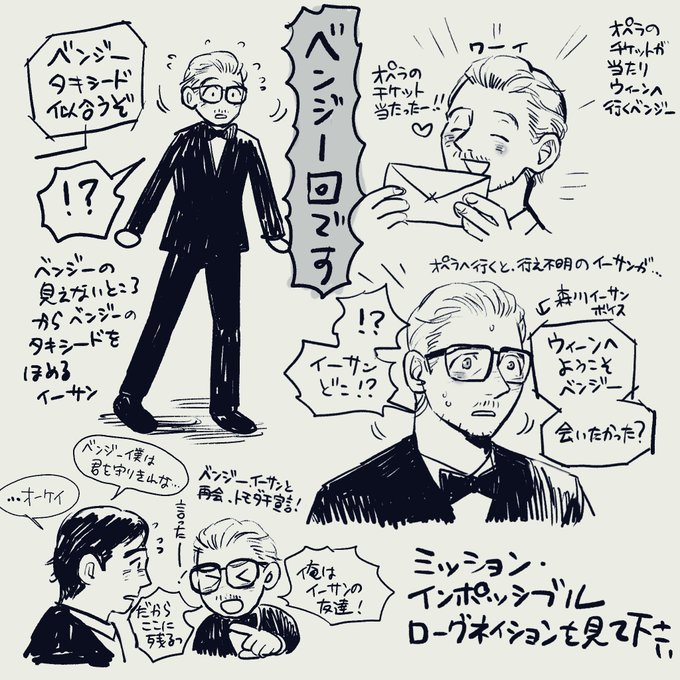 ベンジー回です
オペラの
チケットが
当たり
ウィーンへ
行くベンジー
ワーイ
オペラの
チケット
当たったー!!
ベンジー
タキシード
似合うぞ
!?
ベンジーの
見えないところ
からベンジーの
タキシードを
ほめる
イーサン
オペラへ行くと、行え不明のイーサンが…
森川イーサン
ボイス
!?
イーサン
どこ!?
ウィーンへ
ようこそ
ベンジー
会いたかった?
ベンジー、イーサンと
再会、トモダチ宣言!
ベンジー僕は
君を守りきれな…
…オーケイ
言ったー!
俺は
イーサンの
友達!
だから
ここに
残るっ
ミッション・
インポッシブル
ローグネイションを見て下さい